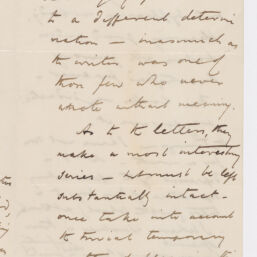 to a different determi
nation – inasmuch as
the writer was one of
those few who never
wrote without meaning.
As to the letters, they
make a most interesting
series – & must be left
substantially intact –
once take into account
the trivial temporary